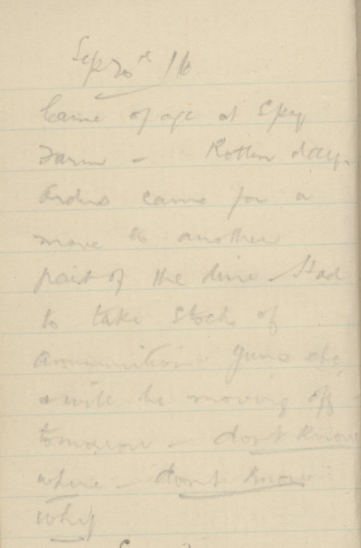 Sep 20th 16
Came of age at Spy
Farm - Rotten day.
Orders came for a
move to another
part of the line. Had
to take stock of
ammunition. Guns etc
& will be moving off
tomorrow - don't know
where - don't know
why